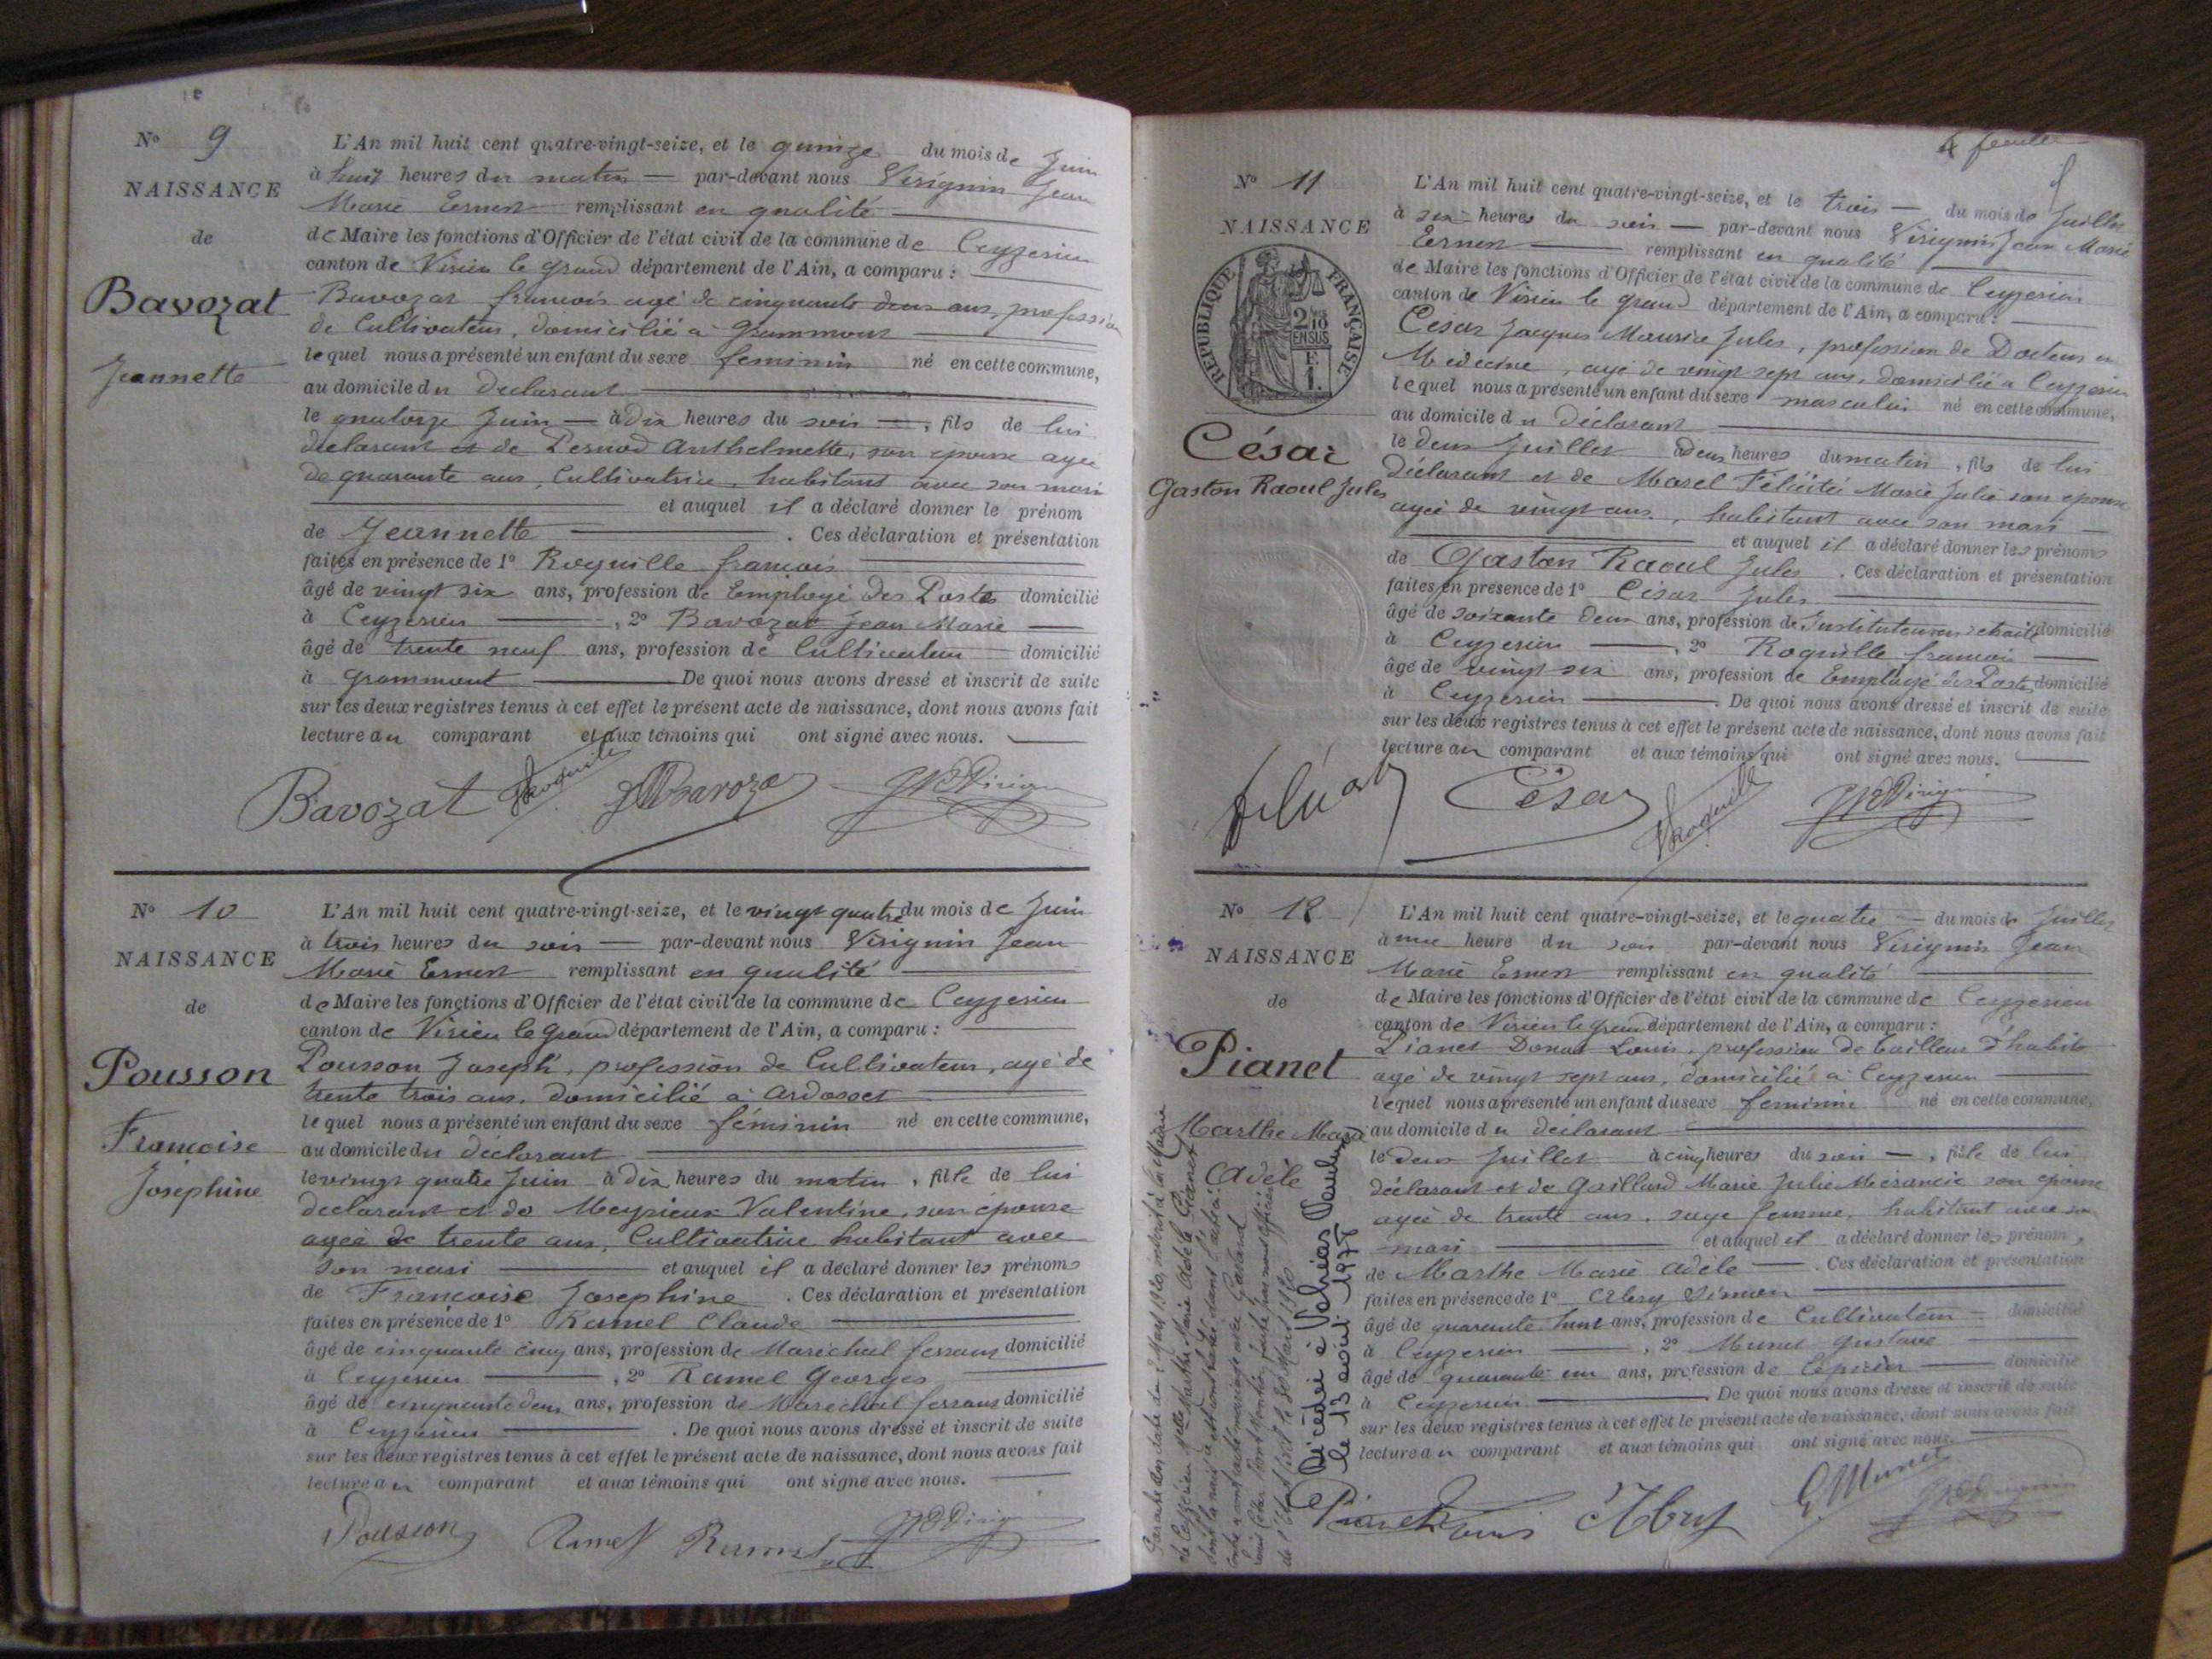 No 9
NAISSANCE
de
Bavozat
Jeannette
L'An mil huit cent quatre-vingt-seize, et le quinze du mois de Juin
à huit heures du matin — par-devant nous Virignin Jean
Marie Ernest remplissant en qualité
de Maire les fonctions d'Officier de l'état civil de la commune de Ceyzerieu
canton de Virieu le grand département de l'Ain, a comparu :
Bavozat francois agé de cinquante deux ans, profession
de Cultivateur, domicilié a Grammont
lequel nous a présenté un enfant du sexe feminin né en cette commune,
au domicile du declarant
le quatorze Juin — à dix heures du soir —, fils de lui
declarant et de Pernod Anthelmette, son épouse agée
de quarante ans, Cultivatrice, habitant avec son mari
et auquel il a déclaré donner le prénom
de Jeannette . Ces déclaration et présentation
faites en présence de 1° Roquille francois
âgé de vingt six ans, profession de Employé des Postes domicilié
à Ceyzerieu , 2° Bavozat Jean Marie
âgé de trente neuf ans, profession de Cultivateur domicilié
à Grammont De quoi nous avons dressé et inscrit de suite
sur les deux registres tenus à cet effet le présent acte de naissance, dont nous avons fait
lecture au comparant et aux témoins qui ont signé avec nous.
Bavozat Roquille JMBavozat
No 10
NAISSANCE
de
Pousson
Francoise
Joséphine
L'An mil huit cent quatre-vingt-seize, et le vingt quatre du mois de Juin
à trois heures du soir — par-devant nous Virignin Jean
Marie Ernest remplissant en qualité
de Maire les fonctions d'Officier de l'état civil de la commune de Ceyzerieu
canton de Virieu le Grand département de l'Ain, a comparu :
Pousson Joseph, profession de Cultivateur, agé de
trente trois ans, domicilié à Ardosset
lequel nous a présenté un enfant du sexe féminin né en cette commune,
au domicile du déclarant
le vingt quatre Juin à dix heures du matin, fille de lui
declarant et de Meyrieux Valentine, son épouse
agée de trente ans, Cultivatrice habitant avec
son mari et auquel il a déclaré donner les prénoms
de Francoise Josephine . Ces déclaration et présentation
faites en présence de 1° Ramel Claude
âgé de cinquante cinq ans, profession de Maréchal ferrant domicilié
à Ceyzerieu , 2° Ramel Georges
âgé de cinquante deux ans, profession de Maréchal ferrant domicilié
à Ceyzerieu . De quoi nous avons dressé et inscrit de suite
sur les deux registres tenus à cet effet le présent acte de naissance, dont nous avons fait
lecture au comparant et aux témoins qui ont signé avec nous.
Pousson Ramel Ramel
4 feuille
No 11
NAISSANCE
RÉPUBLIQUE FRANÇAISE
2/10
EN SUS
César
Gaston Raoul Jules
L'An mil huit cent quatre-vingt-seize, et le trois — du mois de Juillet
à six heures du soir — par-devant nous Virignin Jean Marie
Ernest remplissant en qualité
de Maire les fonctions d'Officier de l'état civil de la commune de Ceyzerieu
canton de Virieu le grand département de l'Ain, a comparu :
César Jacques Maurice Jules, profession de Docteur en
Médecine, agé de vingt sept ans, domicilié a Ceyzerieu
lequel nous a présenté un enfant du sexe masculin né en cette commune,
au domicile du déclarant
le deux Juillet à deux heures du matin, fils de lui
déclarant et de Morel Félicité Marie Julie son épouse
agée de vingt ans, habitant avec son mari
et auquel il a déclaré donner les prénoms
de Gaston Raoul Jules . Ces déclaration et présentation
faites en présence de 1° César Jules
âgé de soixante deux ans, profession de Instituteur en retraite domicilié
à Ceyzerieu , 2° Roquille francois
âgé de vingt six ans, profession de Employé des Postes domicilié
à Ceyzerieu . De quoi nous avons dressé et inscrit de suite
sur les deux registres tenus à cet effet le présent acte de naissance, dont nous avons fait
lecture au comparant et aux témoins qui ont signé avec nous.
César Roquille
No 12
NAISSANCE
de
Pianet
Marthe Marie
Adèle
L'An mil huit cent quatre-vingt-seize, et le quatre — du mois de Juillet
à une heure du soir par-devant nous Virignin Jean
Marie Ernest remplissant en qualité
de Maire les fonctions d'Officier de l'état civil de la commune de Ceyzerieu
canton de Virieu le grand département de l'Ain, a comparu :
Pianet Donat Louis, profession de tailleur d'habits
agé de vingt sept ans, domicilié à Ceyzerieu
lequel nous a présenté un enfant du sexe feminin né en cette commune,
au domicile du déclarant
le deux Juillet à cinq heures du soir —, fille de lui
déclarant et de Gaillard Marie Julie son épouse
agée de trente ans, sage femme, habitant avec son
mari et auquel il a déclaré donner les prénoms
de Marthe Marie Adèle . Ces déclaration et présentation
faites en présence de 1°
âgé de quarante huit ans, profession de Cultivateur domicilié
à Ceyzerieu , 2° Munet Gustave
âgé de quarante un ans, profession de Epicier domicilié
à Ceyzerieu . De quoi nous avons dressé et inscrit de suite
sur les deux registres tenus à cet effet le présent acte de naissance, dont nous avons fait
lecture au comparant et aux témoins qui ont signé avec nous.
Décédée à
le 13 août 1978
Pianet Louis G Munet